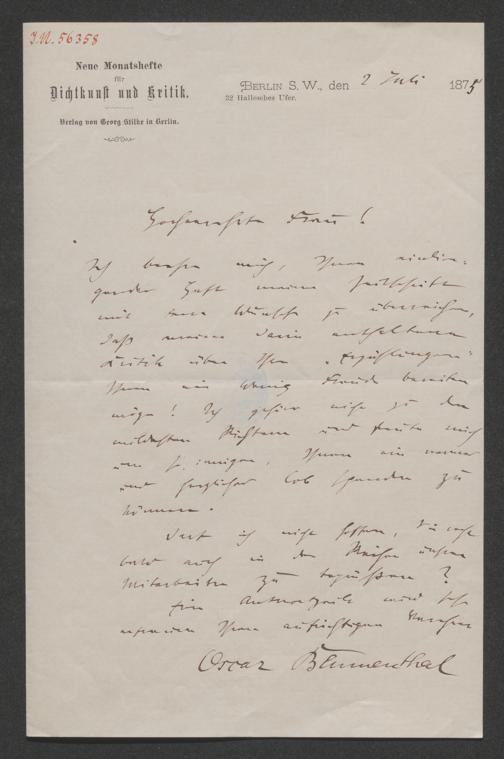 I.N. 56358
Neue Monatshefte
für
Dichtkunst und Kritik.
Verlag von Georg Stilke in Berlin.
BERLIN S. W., den 2 Juli 1875
32 Hallesches Ufer.
Hochverehrte Frau!
Ich beehre mich, Ihnen einlie-
gendes Heft meiner Zeitschrift
mit dem Wunsche zu überreichen,
daß meine darin enthaltene
Kritik über Ihre „Erzählungen"
Ihnen ein wenig Freude bereiten
möge! Ich gehöre nicht zu den
mildesten Richtern und freute mich
um so inniger, Ihnen ein warmes
und herzliches Lob spenden zu
können.
Darf ich nicht hoffen, Sie recht
bald auch in den Reihen unserer
Mitarbeiter zu begrüßen?
Eine Antwortzeile wird sehr
erfreuen Ihren aufrichtigen Verehrer
Oscar Blumenthal